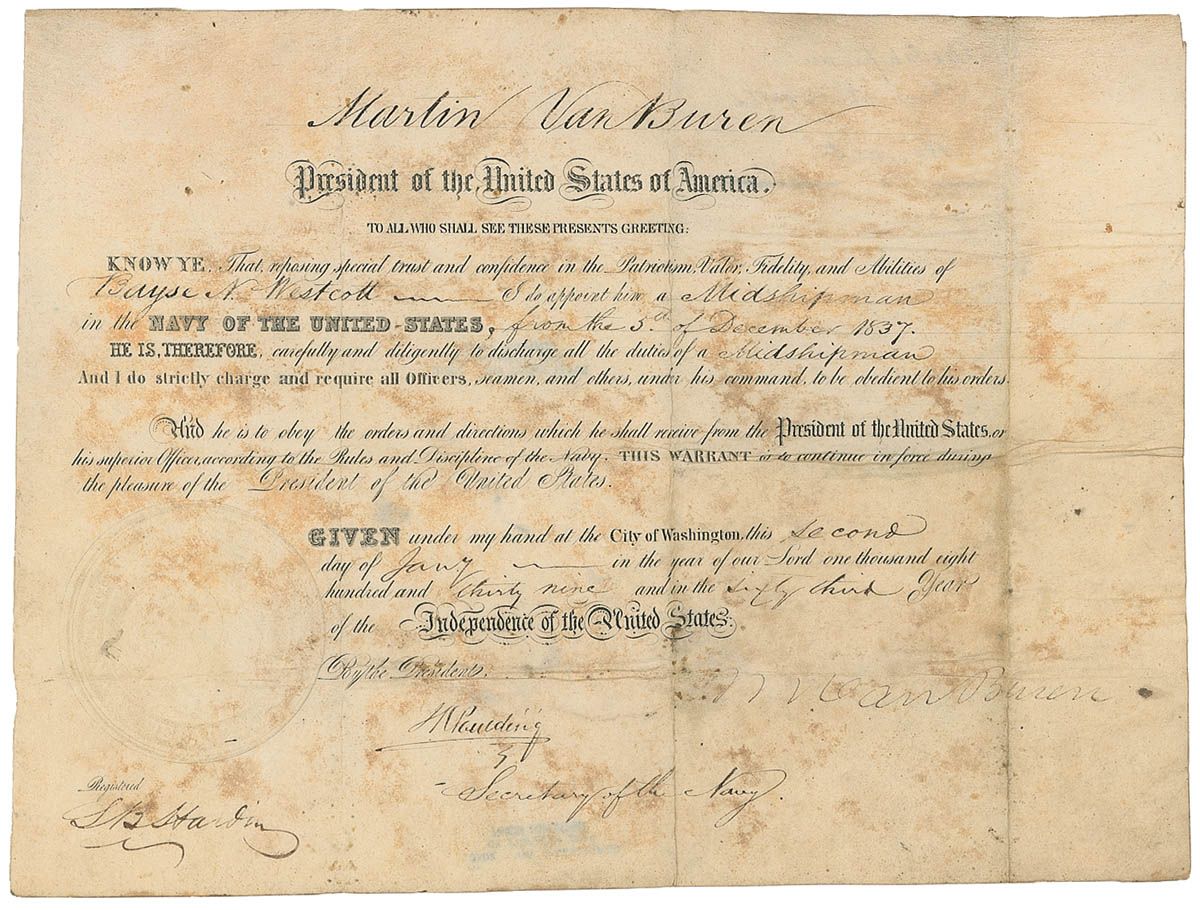 Martin Van Buren
President of the United States of America.
TO ALL WHO SHALL SEE THESE PRESENTS GREETING:
KNOW YE, That, reposing special trust and confidence in the Patriotism, Valor, Fidelity, and Abilities of
Bayse N. Westcott I do appoint him a Midshipman
in the NAVY OF THE UNITED-STATES, from the 5th of December 1837.
HE IS, THEREFORE, carefully and diligently to discharge all the duties of a Midshipman
And I do strictly charge and require all Officers, seamen, and others, under his command, to be obedient to his orders.
And he is to obey the orders and directions which he shall receive from the President of the United States, or
his superior Officer, according to the Rules and Discipline of the Navy. THIS WARRANT is to continue in force during
the pleasure of the President of the United States.
GIVEN under my hand at the City of Washington, this second
day of Jany in the year of our Lord one thousand eight
hundred and thirty nine and in the sixty third Year
of the Independence of the United States:
By the President,
M Van Buren
JK Paulding
Secretary of the Navy.
Registered